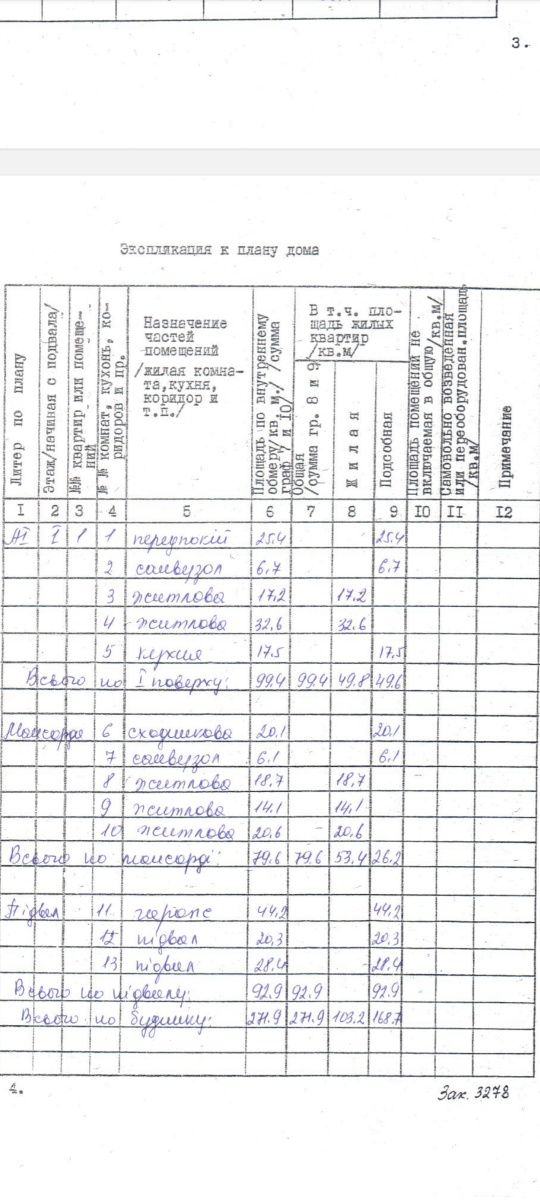 3.
Экспликация к плану дома
Литер по плану
Этаж/начиная с подвала/
№№ квартир или помеще-
ний
№ № комнат, кухонь, ко-
ридоров и пр.
Назначение
частей
помещений
/жилая комна-
та, кухня,
коридор и
т.п./
Площадь по внутреннему
обмеру/кв. м./ /сумма
граф 7 и 10/
Общая
/сумма гр. 8 и 9
В т.ч. пло-
щадь жилых
квартир
/кв.м/
Жилая
Подсобная
Площадь помещений не
включаемая в общую/кв.м/
Самовольно возведенная
или переоборудован.площадь
/кв.м/
Примечание
I 2 3 4 5 6 7 8 9 I0 II I2
АI I 1 1 передпокій 25.4 25.4
2 санвузол 6,7 6,7
3 житлова 17,2 17,2
4 житлова 32,6 32.6
5 кухня 17,5 17,5
Всього по I поверху: 99.4 99.4 49.8 49.6
Мансарда 6 сходинкова 20,1 20,1
7 санвузол 6,1 6,1
8 житлова 18,7 18,7
9 житлова 14,1 14,1
10 житлова 20,6 - 20,6
Всього по мансарді: 79.6 79.6 53,4 26.2
Підвал 11 гараж 44,2 44,2
12 підвал 20,3 20,3
13 підвал 28.4 28.4
Всього по підвалу: 92.9 92.9 92.9
Всього по будинку: 271.9 271.9 103.2 168.7
4.
Зак. 3278